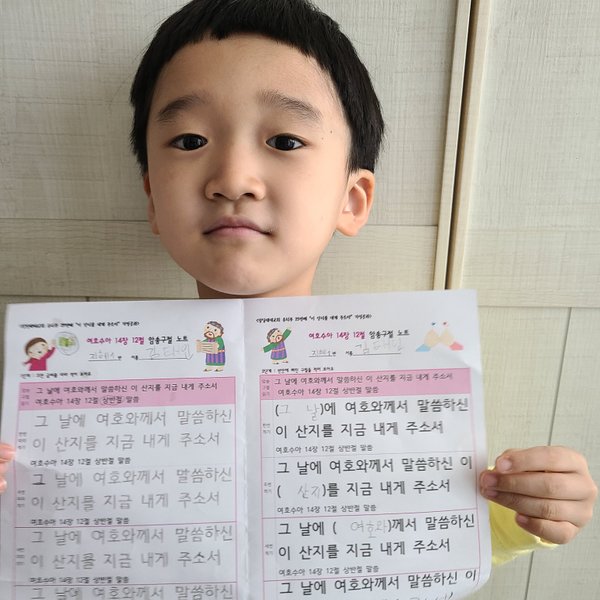 여호수아 14장 12절 암송구절 노트
그 날에 여호와께서 말씀하신 이 산지를 지금 내게 주소서
여호수아 14장 12절 상반절 말씀
그 날에 여호와께서 말씀하신
이 산지를 지금 내게 주소서
여호수아 14장 12절 상반절 말씀
그 날에 여호와께서 말씀하신
이 산지를 지금 내게 주소서
여호수아 14장 12절 상반절 말씀
그 날에 여호와께서 말씀하신
이 산지를 지금 내게 주소서
여호수아 14장 12절 상반절 말씀
그 날에 여호와께서 말씀하신
여호수아 14장 12절 암송구절 노트
그 날에 여호와께서 말씀하신 이 산지를 지금 내게 주소서
여호수아 14장 12절 상반절 말씀
(그 날)에 여호와께서 말씀하신
이 산지를 지금 내게 주소서
여호수아 14장 12절 상반절 말씀
그 날에 여호와께서 말씀하신 이
( 산지)를 지금 내게 주소서
여호수아 14장 12절 상반절 말씀
그 날에 ( 여호와)께서 말씀하신
이 산지를 지금 내게 주소서
여호수아 14장 12절 상반절 말씀
그 날에 여호와께서 말씀하신 이